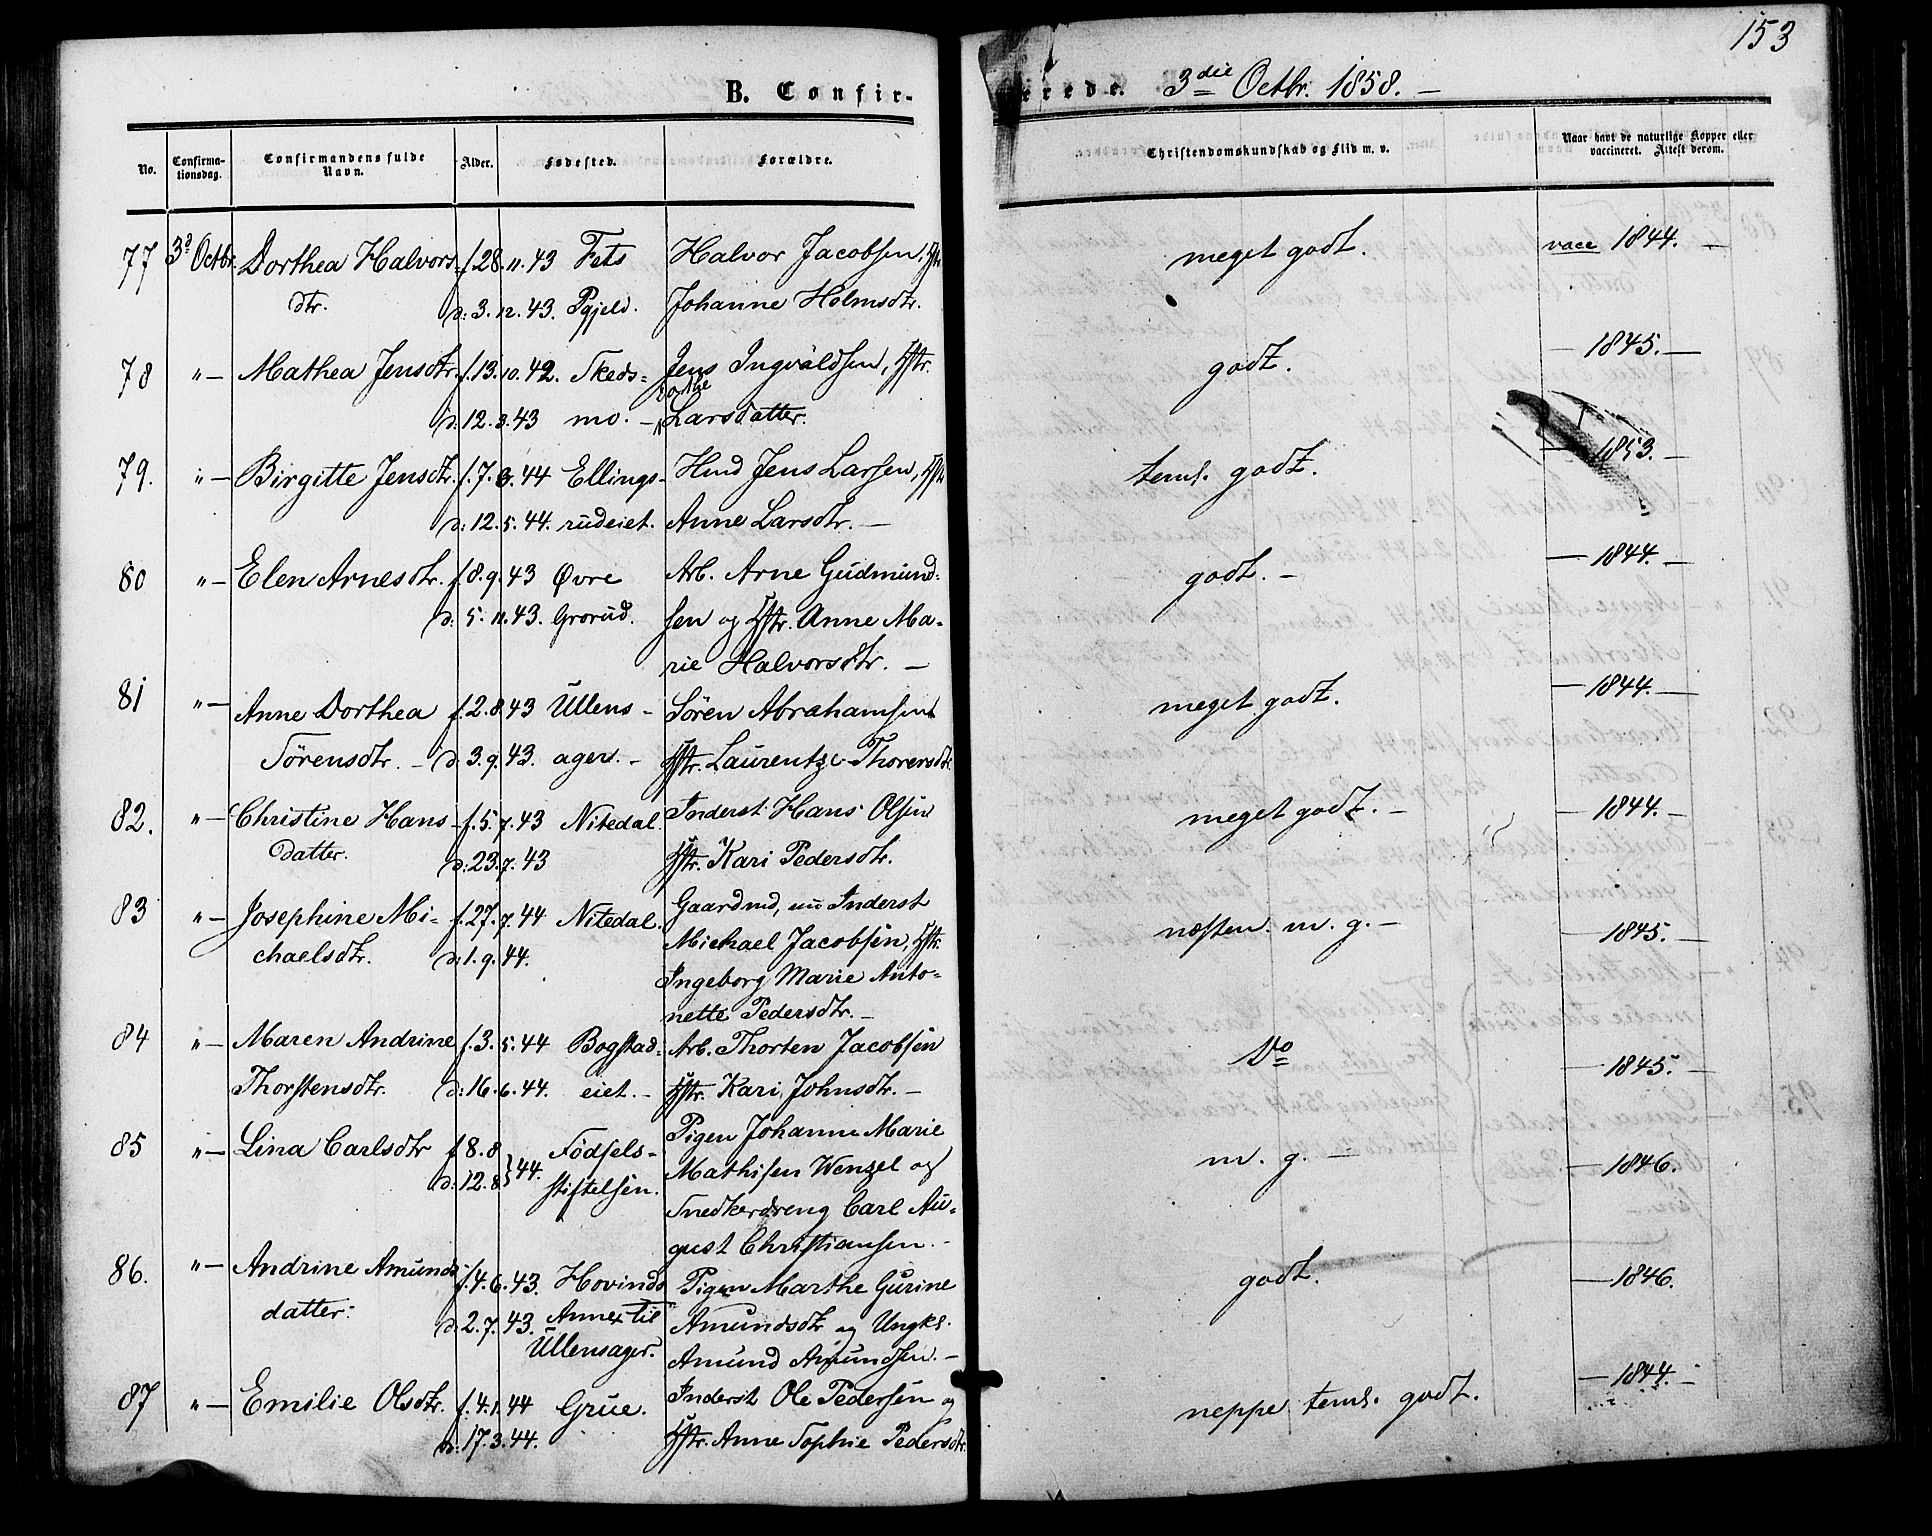 153
B. Confir-
rede. 3die Octbr. 1858. –
No.
Confirma-
tionsdag.
Confirmandens fulde
Navn.
Alder.
Fødested.
Forældre.
Christendomskundskab og Flid m. v.
Naar havt de naturlige Kopper eller
vaccineret. Attest derom.
77 3d Octbr. Dorthea Halvors- f. 28. 11. 43 Fets Halvor Jacobsen, Hstr. meget godt. vacc 1844. –
dtr. d: 3. 12. 43. Pgjeld. Johanne Holmsdtr.
78 " – Mathea Jensdtr. f. 13. 10. 42. Skeds- Jens Ingvaldsen, Hstr. godt. – 1845. –
d. 12. 3. 43 mo. – Larsdatter.
79. " – Birgitte Jensdtr. f. 7. 3. 44 Ellings- Hmd Jens Larsen, Hstr. teml. godt. – 1853. –
d: 12. 5. 44. rudeiet. Anne Larsdtr. –
80 " – Elen Arnesdtr. f. 8. 9. 43 Øvre Arb. Arne Gudmund- godt. – – 1844. –
d: 5. 11. 43. Grorud. sen og Hstr. Anne Ma-
rie Halvorsdtr. –
81 " – Anne Dorthea f. 2. 8. 43 Ullens- Sören Abrahamsen meget godt. – 1844. –
Sörensdtr. – d. 3. 9. 43. agers. – Hstr. Laurentze Thorersdtr.
82. " – Christine Hans- f. 5. 7. 43 Nitedal. Inderst Hans Olsen meget godt. – – 1844. –
datter. d: 23. 7. 43 Hstr. Kari Pedersdtr.
83 " – Josephine Mi- f. 27. 7. 44 Nitedal. Gaardmd, nu Inderst næsten. m. g. – – 1845. –
chaelsdtr. d: 1. 9. 44. Michael Jacobsen, Hstr.
Ingeborg Marie Anto-
nette Pedersdtr. –
84 " – Maren Andrine f. 3. 5. 44 Bogstad- Arb. Thorten Jacobsen Do – 1845. –
Thorstensdtr. d: 16. 6. 44. eiet. – Hstr. Kari Johnsdtr. –
85 " – Lina Carlsdtr f. 8. 8 } 44. Födsels- Pigen Johanne Marie m. g. – – 1846.
d: 12. 8 stiftelsen. Mathisen Wenzel og
Snedkerdreng Carl Au-
gust Christiansen. –
86. " – Andrine Amunds- f. 4. 6. 43. Hovinds Pigen Marthe Gurine godt. – 1846. –
datter. d. 2. 7. 43. Annex til Amundsdtr og Ungkl.
Ullensager. Amund Amundsen. –
87 " – Emilie Olsdtr. f. 4. 1. 44 Grue. Inderst Ole Pedersen og neppe teml. godt. – 1844. –
d: 17. 3. 44. Hstr. Anne Sophie Pedersdtr.